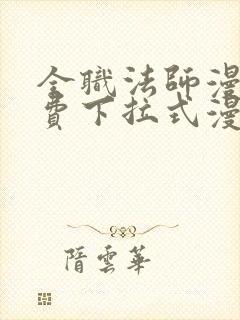 全職法師漫
費下拉式漫
隋雲華